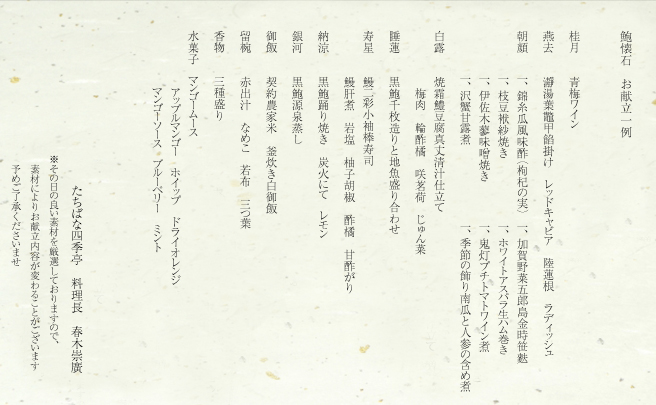 鮑懐石　お献立一例
桂月　青梅ワイン
燕去　瀞湯葉鼈甲餡掛け　レッドキャビア　陸蓮根　ラディッシュ
朝顔　一、錦糸瓜風味酢（枸杞の実）　一、加賀野菜五郎島金時笹麩
一、枝豆袱紗焼き　一、ホワイトアスパラ生ハム巻き
一、伊佐木蓼味噌焼き　一、鬼灯プチトマトワイン煮
一、沢蟹甘露煮　一、季節の飾り南瓜と人参の含め煮
白露　焼霜鱧豆腐真丈清汁仕立て
梅肉　輪酢橘　咲茗荷　じゅん菜
睡蓮　黒鮑千枚造りと地魚盛り合わせ
寿星　鰻三彩小袖棒寿司
鰻肝煮　岩塩　柚子胡椒　酢橘　甘酢がり
納涼　黒鮑踊り焼き　炭火にて　レモン
銀河　黒鮑源泉蒸し
御飯　契約農家米　釜炊き白御飯
留椀　赤出汁　なめこ　若布　三つ葉
香物　三種盛り
水菓子　マンゴームース
アップルマンゴー　ホイップ　ドライオレンジ
マンゴーソース　ブルーベリー　ミント
たちばな四季亭　料理長　春木崇廣
※その日の良い素材を厳選しておりますので、
素材によりお献立内容が変わることがございます
予めご了承くださいませ